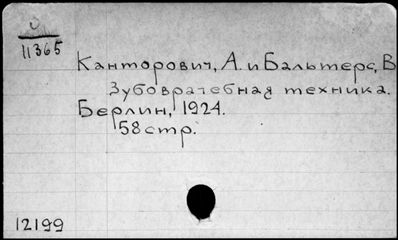 U
11365
Канторович, А. и Бальтерс, В
Зубоврачебная техника.
Берлин, 1924.
58 стр.
12199